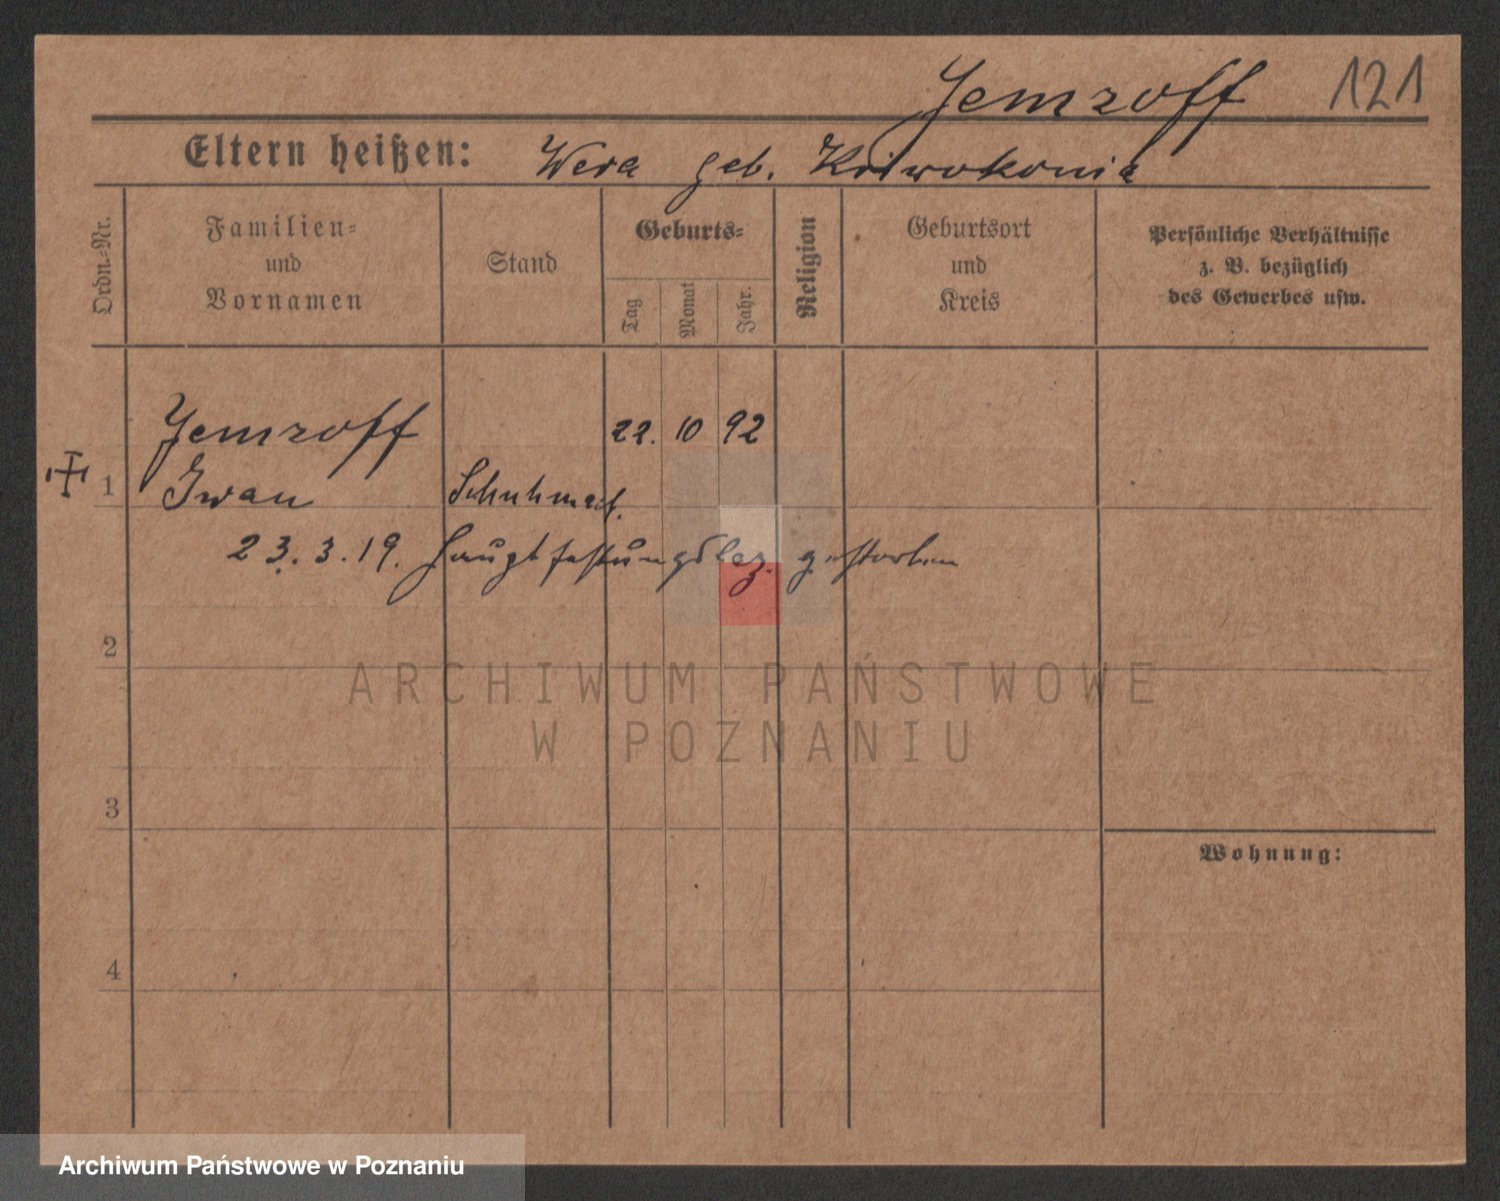 Jemzoff 121
Eltern heißen: Wera geb. Kriwokonia
Ordn.=Nr.
Familien=
und
Vornamen
Stand
Geburts=
Tag
Monat
Jahr.
Religion
Geburtsort
und
Kreis
Persönliche Verhältnisse
z. B. bezüglich
des Gewerbes usw.
Jemzoff 22. 10 92
1 Iwan Schuhmach.
23. 3. 19. Hauptfestungslaz. gestorben
2
ARCHIWUM PAŃSTWOWE
W POZNANIU
3
Wohnung:
4
Archiwum Państwowe w Poznaniu